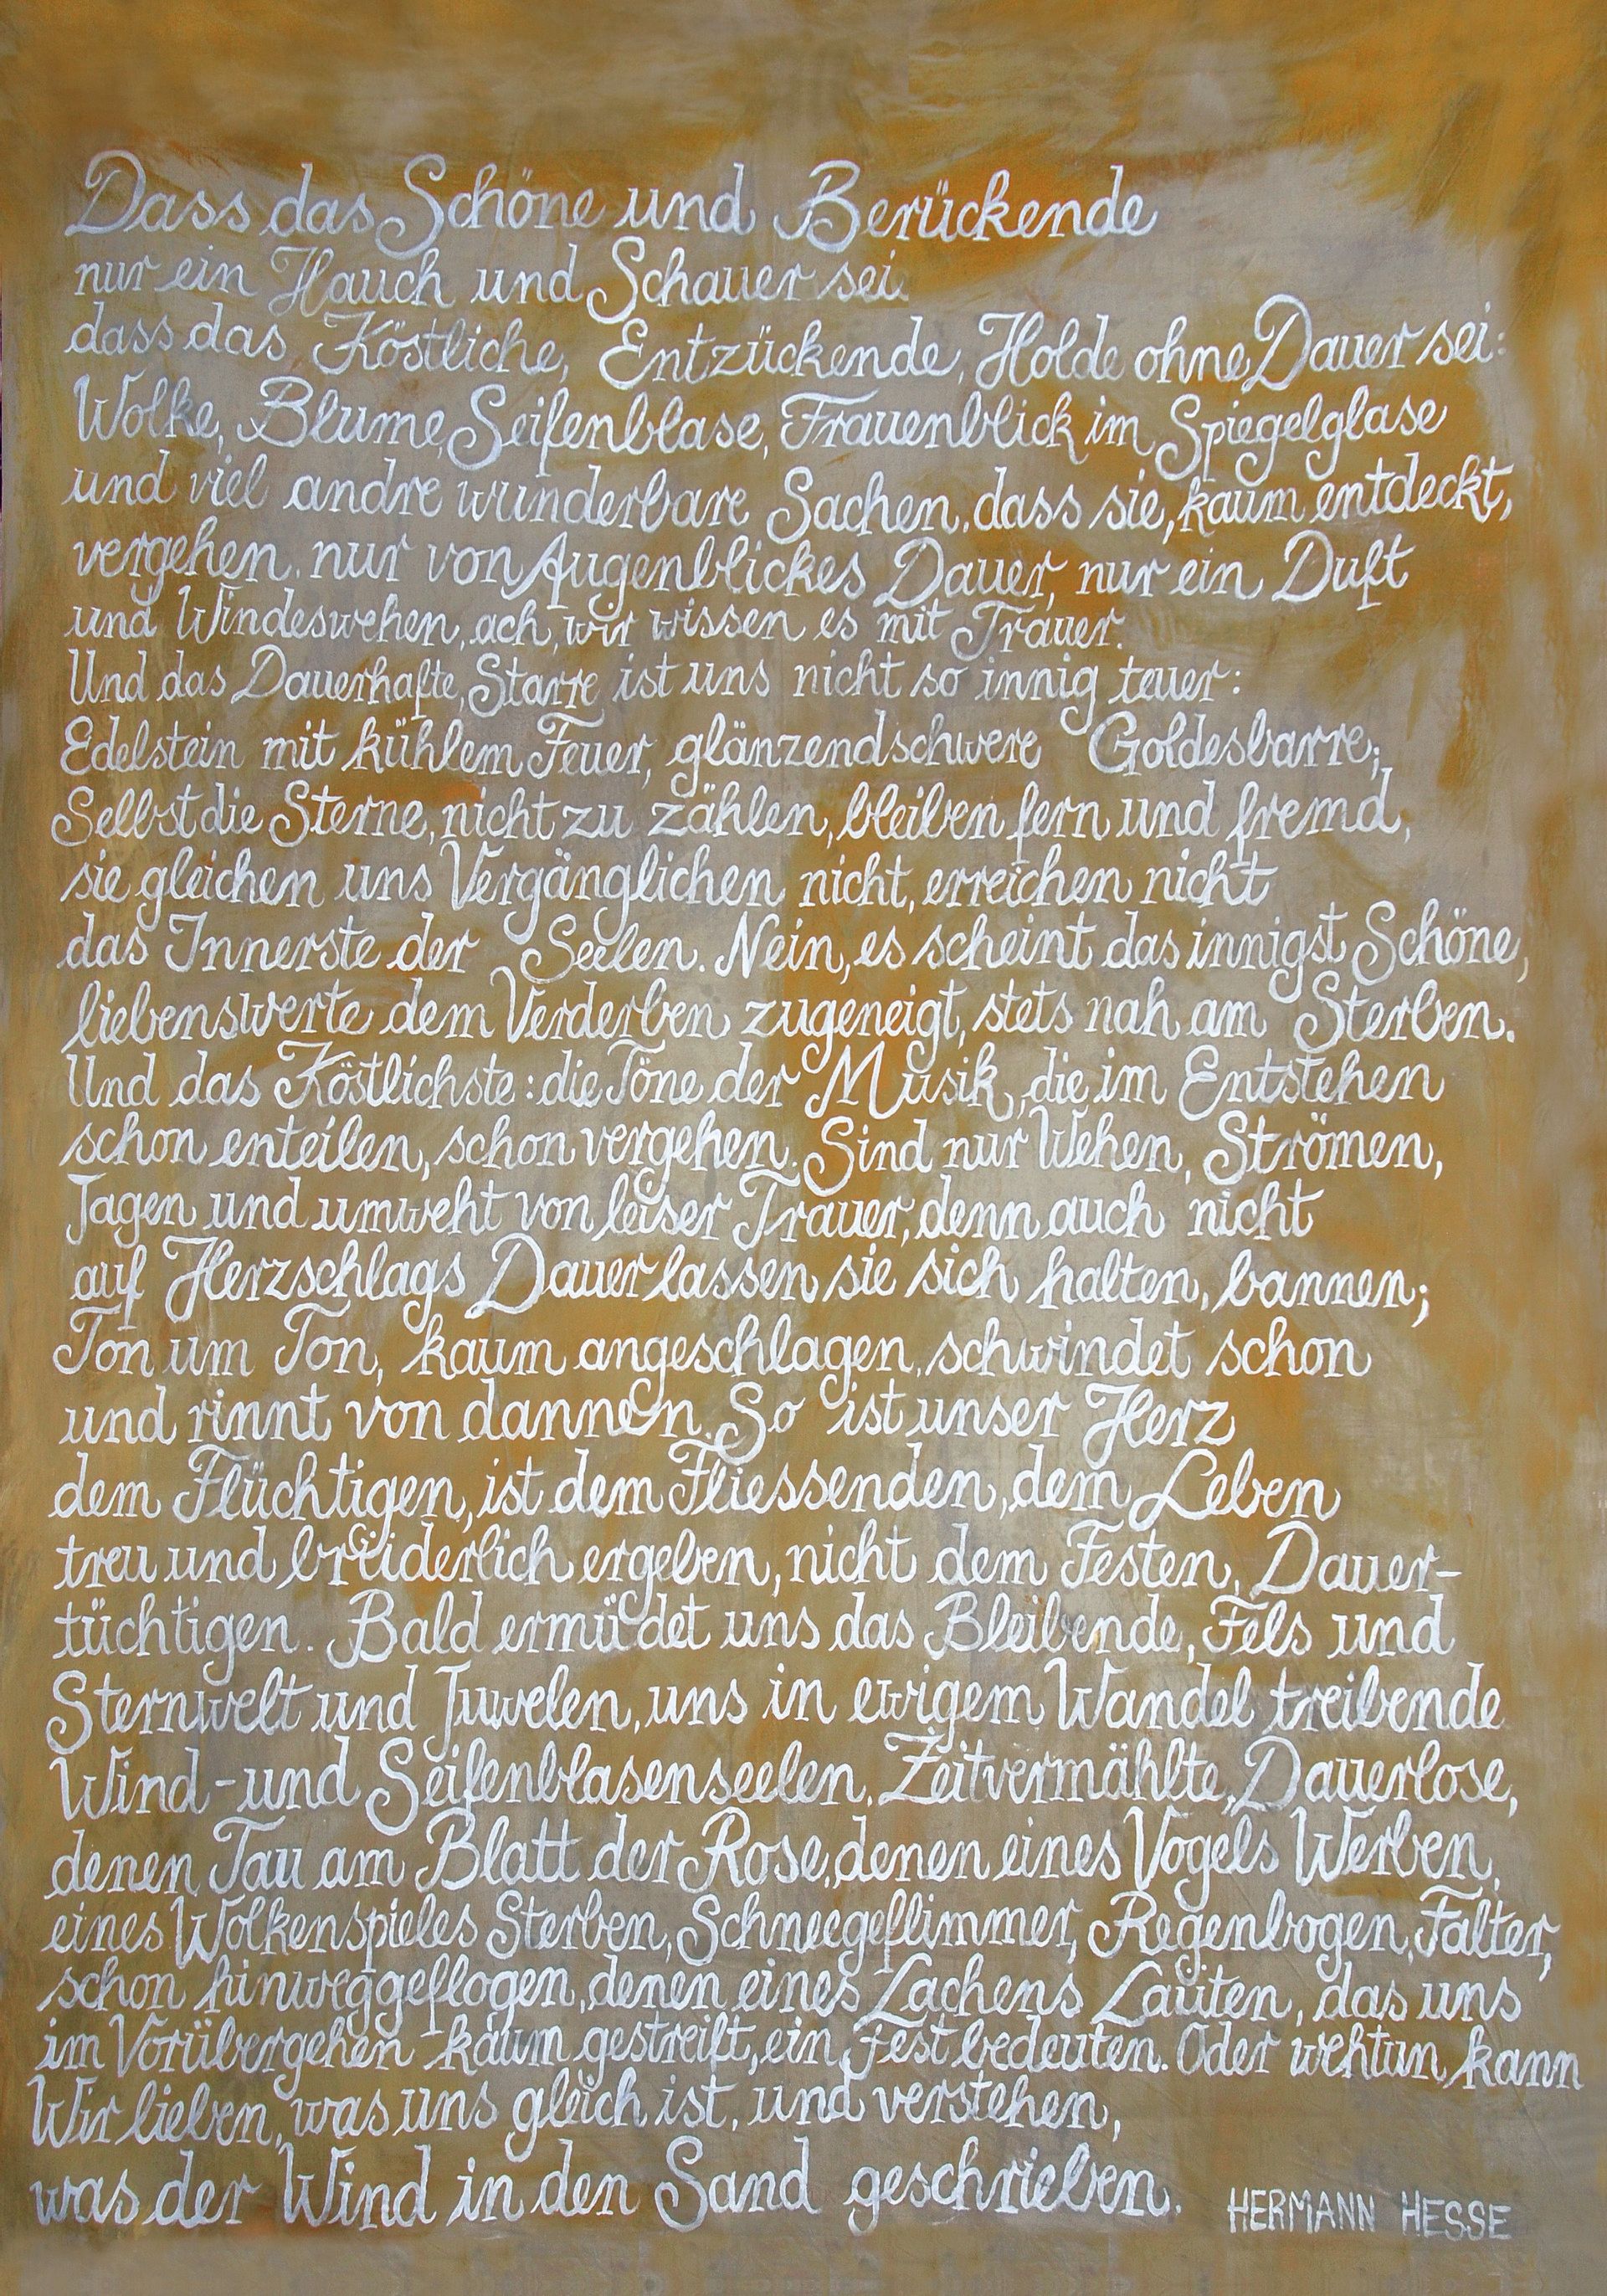 Dass das Schöne und Berückende
nur ein Hauch und Schauer sei
dass das Köstliche, Entzückende, Holde ohne Dauer sei:
Wolke, Blume, Seifenblase, Frauenblick im Spiegelglase
und viel andre wunderbare Sachen, dass sie, kaum entdeckt,
vergehen, nur von Augenblickes Dauer, nur ein Duft
und Windeswehen, ach, wir wissen es mit Trauer.
Und das Dauerhafte, Starre ist uns nicht so innig teuer:
Edelstein mit kühlem Feuer, glänzendschwere Goldesbarre;
Selbst die Sterne, nicht zu zählen, bleiben fern und fremd,
sie gleichen uns Vergänglichen nicht, erreichen nicht
das Innerste der Seelen. Nein, es scheint das innigst Schöne,
liebenswerte dem Verderben zugeneigt, stets nah am Sterben.
Und das Köstlichste: die Töne der Musik, die im Entstehen
schon enteilen, schon vergehen. Sind nur Wehen, Strömen,
Jagen und umweht von leiser Trauer, denn auch nicht
auf Herzschlags Dauer lassen sie sich halten, bannen;
Ton um Ton, kaum angeschlagen, schwindet schon
und rinnt von dannen. So ist unser Herz
dem Flüchtigen, ist dem Fliessenden, dem Leben
treu und brüderlich ergeben, nicht dem Festen, Dauer-
tüchtigen. Bald ermüdet uns das Bleibende, Fels und
Sternwelt und Juwelen, uns in ewigem Wandel treibende
Wind-und Seifenblasenseelen. Zeitvermählte, Dauerlose,
denen Tau am Blatt der Rose, denen eines Vogels Werben,
eines Wolkenspieles Sterben, Schneegeflimmer, Regenbogen, Falter,
schon hinweggeflogen, denen eines Lachens Lauten, das uns
im Vorübergehen kaum gestreift, ein Fest bedeuten. Oder wehtun kann
Wir lieben, was uns gleich ist, und verstehen,
was der Wind in den Sand geschrieben.
HERMANN HESSE